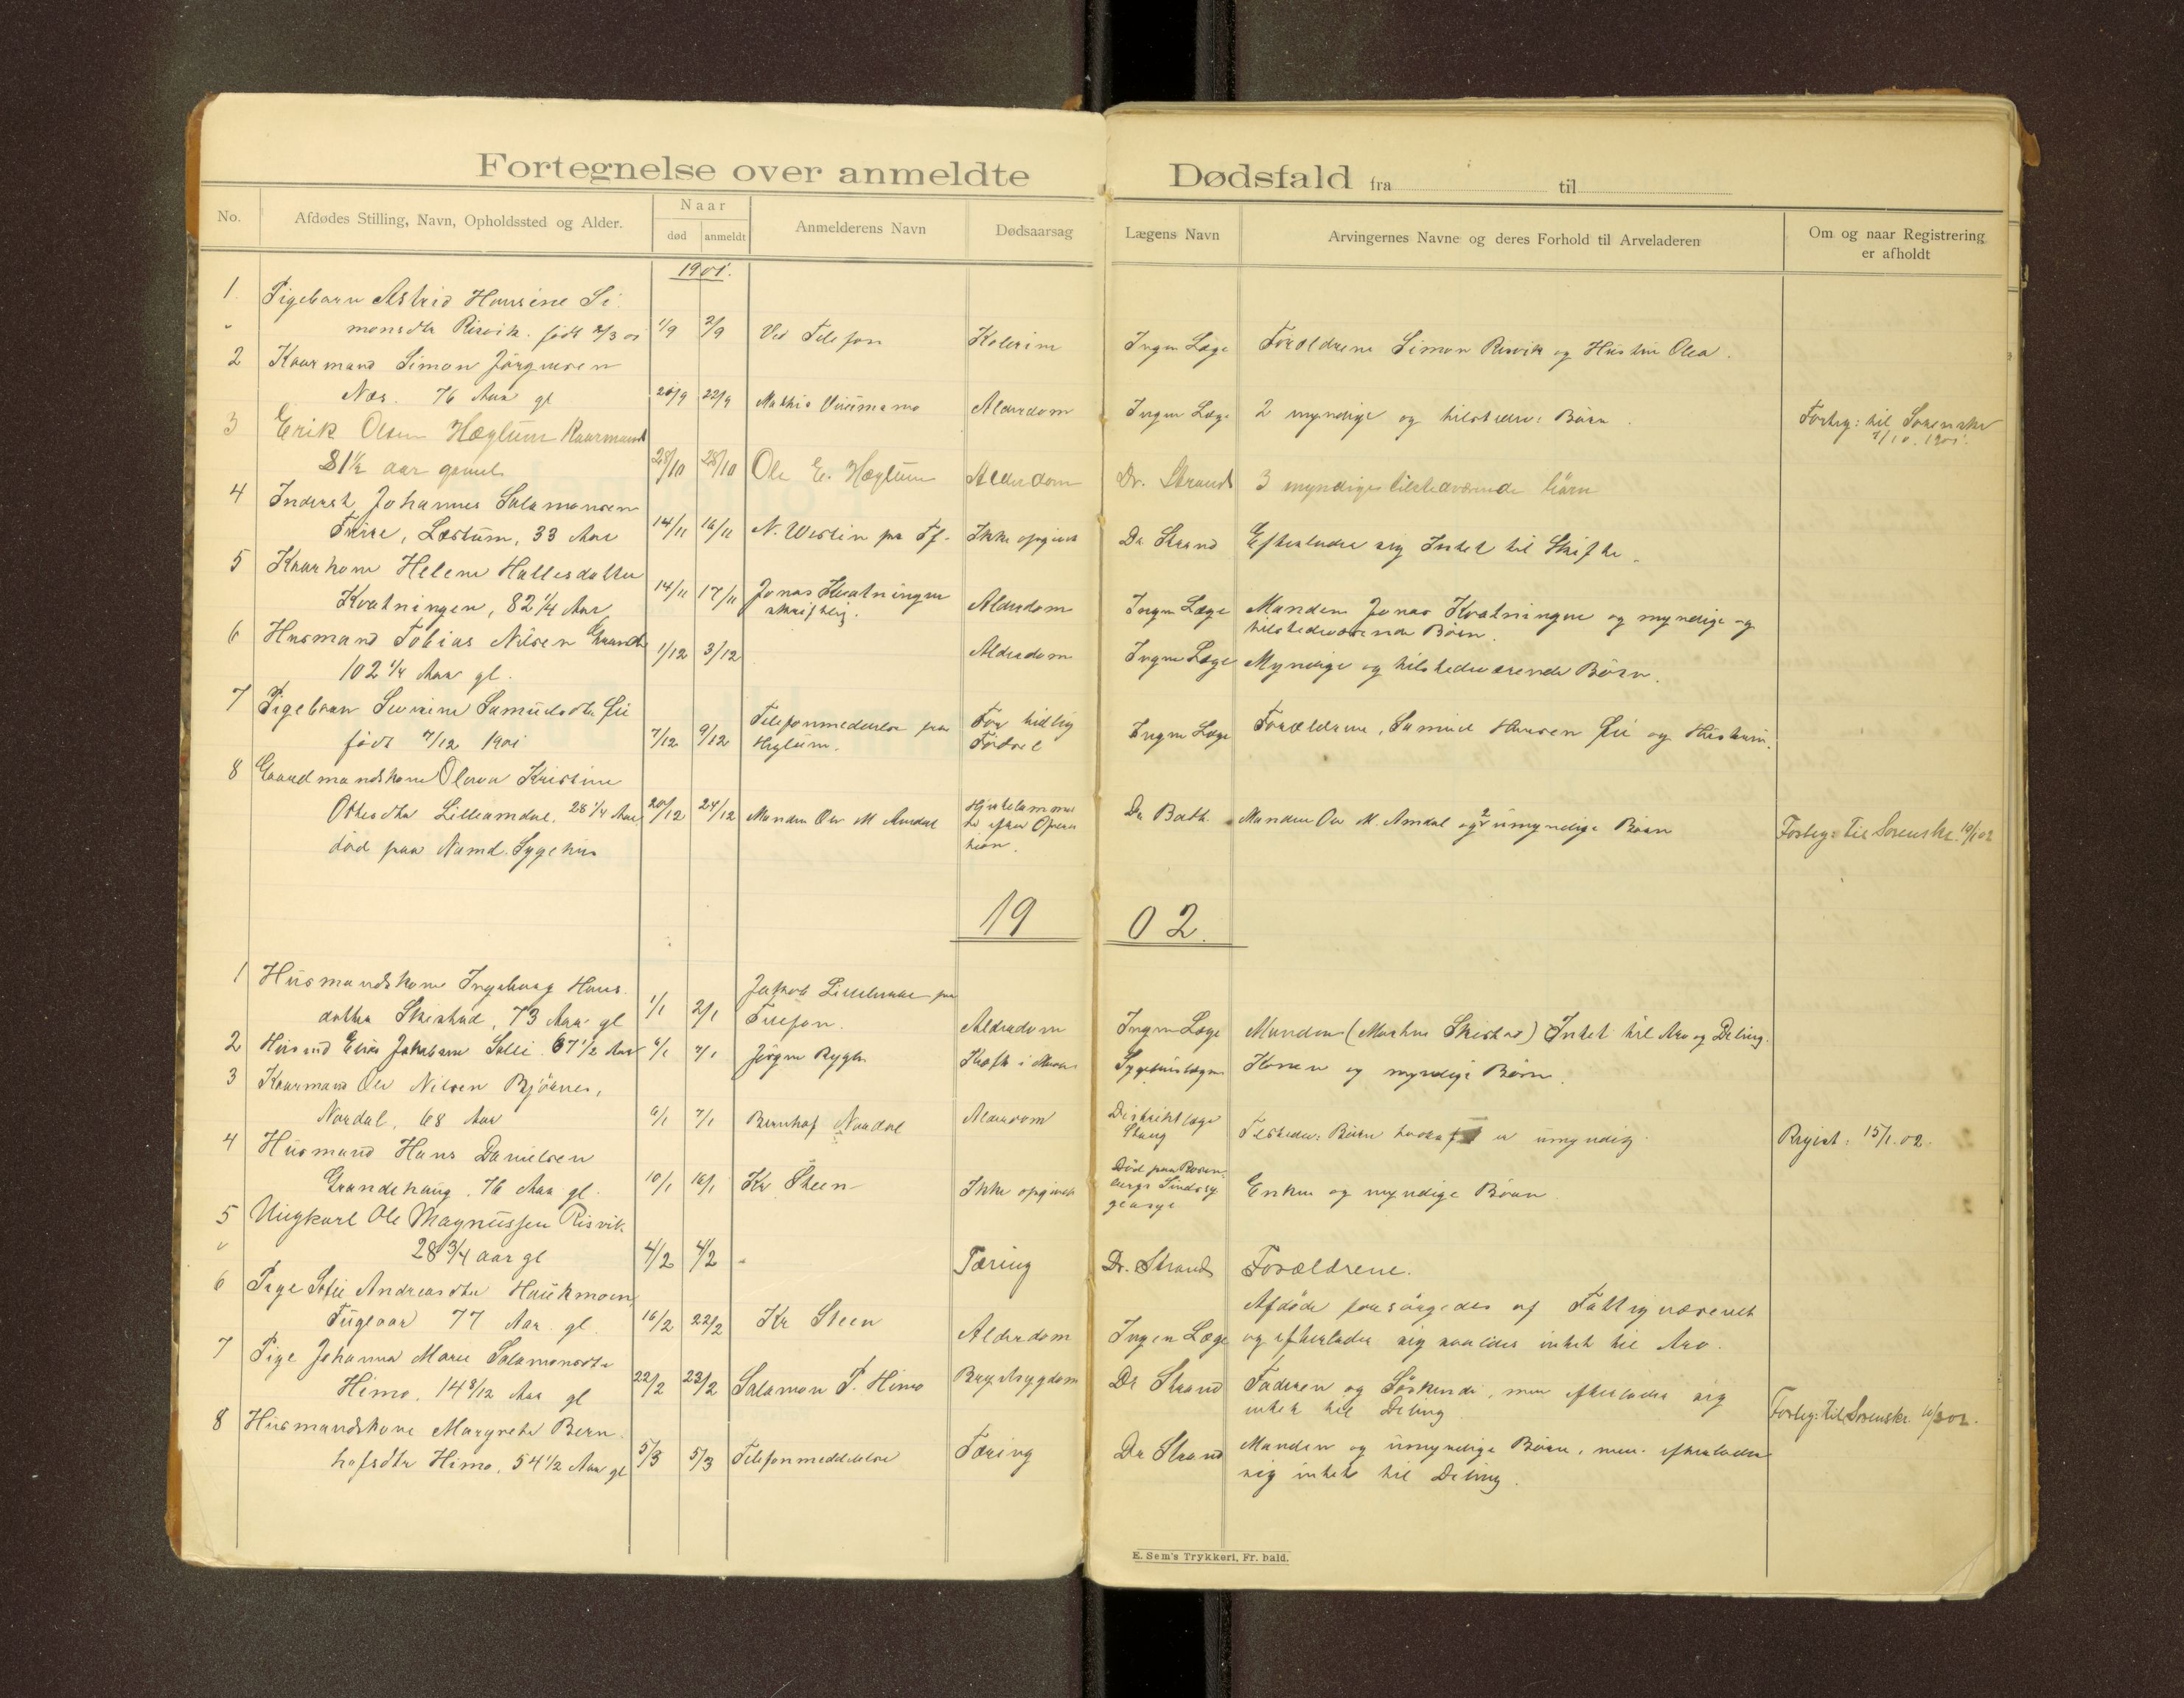 Fortegnelse over anmeldte Dødsfald fra til
No. Afdødes Stilling, Navn, Opholdssted og Alder. Naar død anmeldt Anmelderens Navn Dødsaarsag Lægens Navn Arvingernes Navne og deres Forhold til Arveladeren Om og naar Registrering er afholdt
1901.
1. Pigebarn Astrid Hansine Si
monsdtr Risvik. født 2/3 01 1/9 2/9 Ved Telefon Kolerine Ingen Læge Forældrene Simon Risvik og Hustru Olea.
2 Kaarmand Simon Jörgensen
Næs. 76 Aar gl 20/9 22/9 Alderdom Ingen Læge 2 myndige og tilstedev: Börn. Forteg: til Sorenskr
7/10. 1901.
3 Erik Olsen Hæglum Kaarmand
81½ aar gammel 28/10 28/10 Ole E. Hæglum Alderdom Dr. Strand 3 myndige tilstedeværende börn
4 Inderst Johannes Salamonsen
Læstum, 33 Aar 14/11 16/11 N. Westin pr Tf. Ikke opgivet Dr. Strand Efterlader sig Intet til Skifte.
5 Kaarkone Helene Hallesdatter
Kvatningen, 82 1/4 Aar 14/11 17/11 Jonas Kvatningen
skriftlig. Alderdom Ingen Læge Manden Jonas Kvatningen og myndige og
tilstedeværende Börn.
6 Husmand Tobias Nilsen Grande
102 1/4 Aar gl. 1/12 3/12 Alderdom Ingen Læge Myndige og tilstedeværende Börn.
7 Pigebarn Severine Samuelsdtr Lii
født 7/12 1901 7/12 9/12 Telefonmeddelelse fra
Heglum. For tidlig
Födsel Ingen Læge Forældrene, Samuel Hansen Lii og Hustru.
8 Gaardmandskone Olava Kristine
Ottesdtr Lilleamdal. 28 1/4 Aar 20/12 24/12 Manden Ole M Amdal Hjertelammel
se efter Opera
tion. Dr Bath. Manden Ole M. Amdal og 2 umyndige Börn Forteg: Til Sorenskr. 10/1 02
död paa Namd. Sygehus
1902.
1 Husmandskone Ingeborg Hans
datter Skistad, 73 Aar gl 1/1 2/1 Jakob pr
Telefon. Alderdom Ingen Læge Manden (Skistad) Intet til Arv og Deling.
2 Husmd Elias Jakobsen Solli 67 1/2 Aar 6/1 7/1 Jörgen Rygh Kræft i Maven Sygehuslægen Konen og myndige Börn.
3 Kaarmand Ole Nilsen Bjömes,
Nordal, 68 Aar 6/1 7/1 Bernhof Nordal Alderdom Distriktslæge
Stang Tilstedev: Börn hvoraf er umyndig. Regist: 15/1. 02.
4 Husmand Hans Danielsen
Grandehaug. 76 Aar gl. 10/1 16/1 Kr Steen Ikke opgivet Död paa Rosen
bergs Sindssy
geasyl Enken og myndige Börn
5 Ungkarl Ole Magnussen Risvik
28 3/4 aar gl 4/2 4/2 Tæring Dr. Strand Forældrene.
6 Pige Sofie Andreasdtr Haukmoen,
77 Aar gl. 16/2 22/2 Kr Steen Alderdom Ingen Læge Afdöde forsörgedes af Fattigvæsenet
og efterlader sig saaledes intet til Arv.
7 Pige Johanna Marie Salamonsdtr
Himo. 14 8/12 Aar gl 22/2 23/2 Salamon P. Himo Brystsygdom Dr Strand Faderen og Söskende, men efterlader sig
intet til Deling Forteg: til Sorenskr.
8 Husmandskone Margrete Bern
hofsdtr Himo, 54 1/2 Aar gl 5/3 5/3 Telefonmeddelelse Tæring Dr Strand Manden og umyndige Börn, men efterlader
sig intet til Deling.
E. Sem's Trykkeri, Fr. hald.